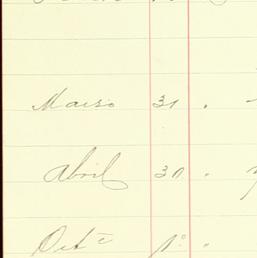 Marso 31 "
Abril 30 "
Oct.e 1º "